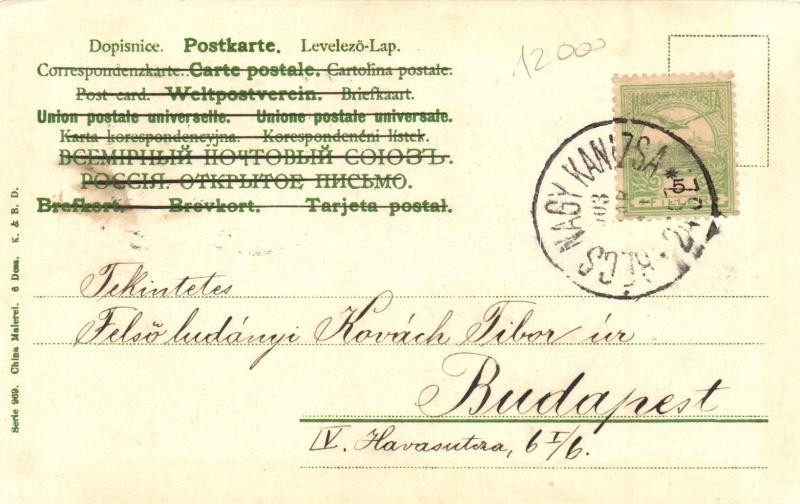 Dopisnice. Postkarte. Levelezö-Lap.
Correspondenzkarte. Carte postale. Cartolina postale.
Post card. Weltpostverein. Briefkaart.
Union postale universelle. Unione postale universale.
Karta korespondencyjna. Korespondenční lístek.
ВСЕМІРНЫЙ ПОЧТОВЫЙ СОЮЗЪ.
РОССІЯ. ОТКРЫТОЕ ПИСЬМО.
Brefkort. Brevkort. Tarjeta postal.
12000
MAGYAR KIR. POSTA
5
NAGY KANIZSA
Tekintetes
Felsőludányi Kovách Tibor úr
Budapest
IV. Havasutcza, 6 I/6.
Serie 969. China Malerei. 6 Dess. K. & B. D.